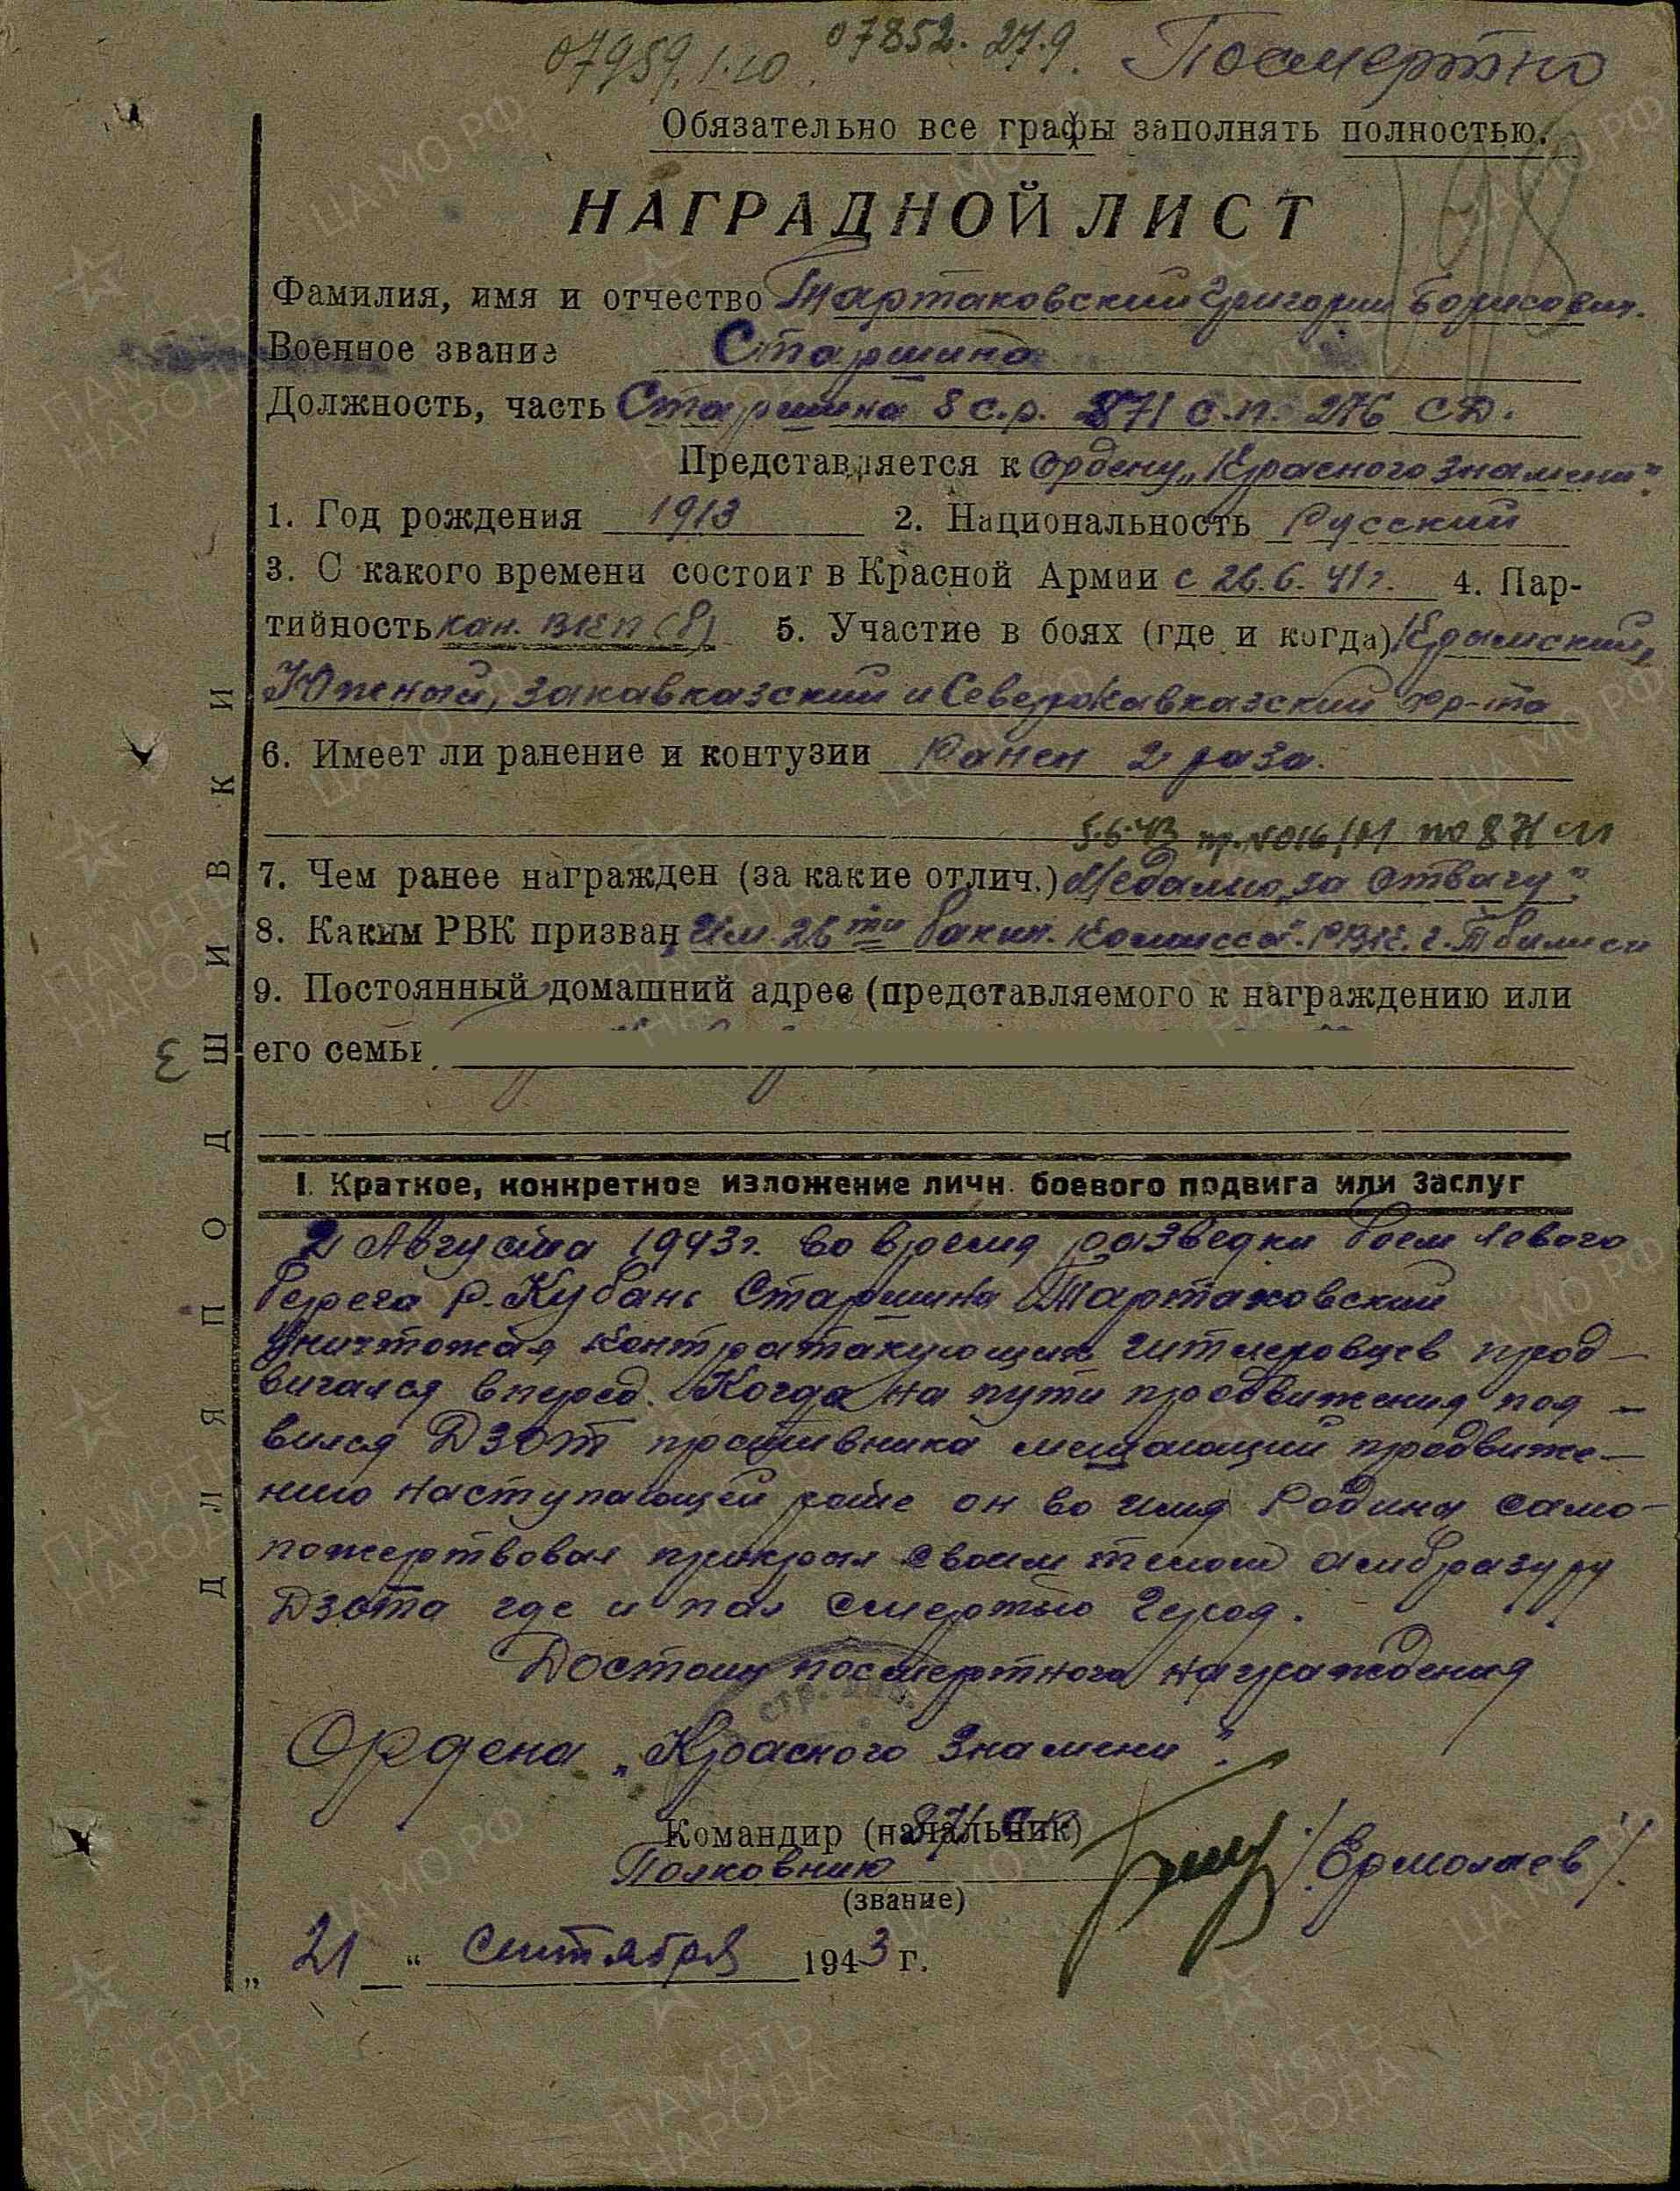 07959. 1.10. 07852. 27.9. Посмертно
Обязательно все графы заполнять полностью.
НАГРАДНОЙ ЛИСТ
Фамилия, имя и отчество Тартаковский Григорий Борисович.
Военное звание Старшина
Должность, часть Старшина 8 с.р. 871 с.п. 276 СД.
Представляется к ордену „Красного Знамени".
1. Год рождения 1913 2. Национальность Русский
3. С какого времени состоит в Красной Армии с 26.6.41г. 4. Пар-
тийность кан. ВКП(б) 5. Участие в боях (где и когда) Крымский,
Южный, Закавказский и Северокавказский фр-та
6. Имеет ли ранение и контузии Ранен 2 раза.
5.6.43 пр. №016/н по 871 сп
7. Чем ранее награжден (за какие отлич.) Медалью „за отвагу"
8. Каким РВК призван Им. 26ти бакин. комисса. РВК. г. Тбилиси
9. Постоянный домашний адрес (представляемого к награждению или
его семьи
ДЛЯ ПОДШИВКИ
3
I. Краткое, конкретное изложение личн. боевого подвига или заслуг
2 Августа 1943г. во время разведки боем левого
берега р. Кубань Старшина Тартаковский
уничтожая контратакующих гитлеровцев прод-
вигался вперед. Когда на пути продвижения поя-
вился Дзот противника мешающий продвиже-
нию наступающей роте он во имя Родины само-
пожертвовал прикрыл своим телом амбразуру
Дзота где и пал смертью героя.
Достоин посмертного награждения
Ордена „Красного Знамени".
Командир (начальник) 871 сп
Полковник /Ермолаев/.
(звание)
„ 21 " сентября 1943 г.
ЦАМО РФ
ПАМЯТЬ НАРОДА